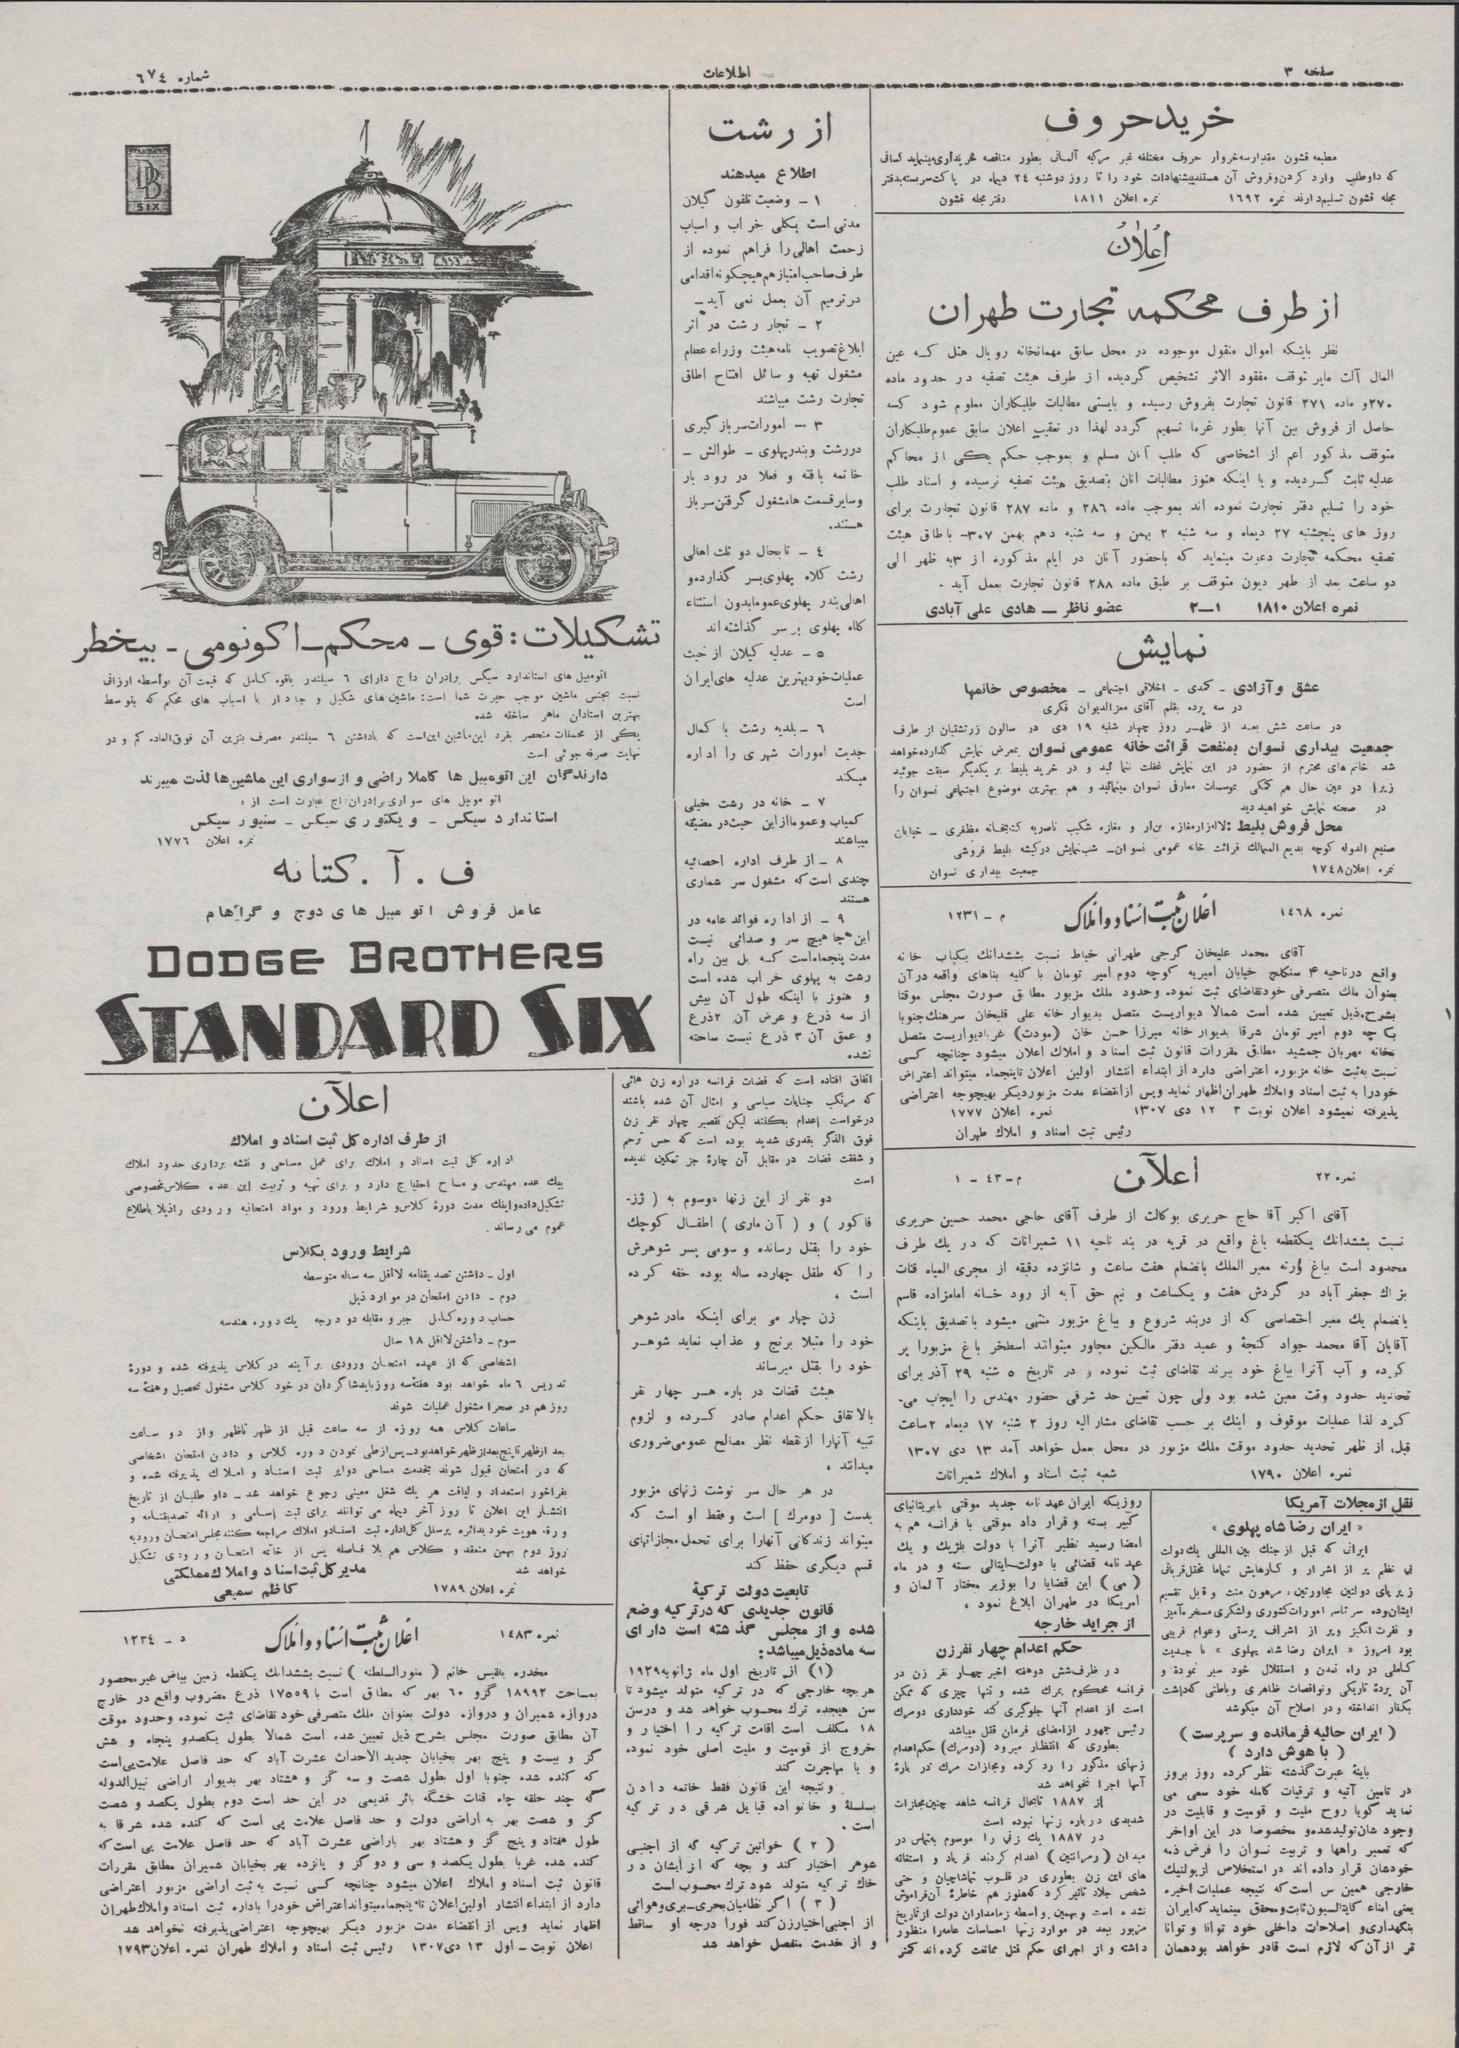 صفحه ۳
اطلاعات
شماره ٦٧٤
خرید حروف
مطبعه قشون مقدار سه خروار حروف مختلفه غیر مرکبه آلمانی بطور مناقصه خریداری مینماید کسانی
که داوطلب وارد کردن و فروش آن هستند پیشنهادات خود را تا روز دوشنبه ۲٤ دیماه در پاکت سربسته بدفتر
مجله قشون تسلیم دارند نمره ۱٦۹۲
نمره اعلان ۱۸۱۱
دفتر مجله قشون
اعلان
از طرف محکمه تجارت طهران
نظر باینکه اموال منقول موجوده در محل سابق مهمانخانه رویال هتل که عین
المال آلت مایر توقف مفقود الاثر تشخیص گردیده از طرف هیئت تصفیه در حدود ماده
۲۷۰ و ماده ۲۷۱ قانون تجارت بفروش رسیده و بایستی مطالبات طلبکاران معلوم شود که
حاصل از فروش بین آنها بطور غرما تسهیم گردد لهذا در تعقیب اعلان سابق عموم طلبکاران
متوقف مذکور اعم از اشخاصی که طلب آنان مسلم و بموجب حکم یکی از محاکم
عدلیه ثابت گردیده و یا اینکه هنوز مطالبات آنان بتصدیق هیئت تصفیه نرسیده و اسناد طلب
خود را تسلیم دفتر تجارت نموده اند بموجب ماده ۲۸٦ و ماده ۲۸۷ قانون تجارت برای
روز های پنجشنبه ۲۷ دیماه و سه شنبه ۲ بهمن و سه شنبه دهم بهمن ۳۰۷- باطاق هیئت
تصفیه محکمه تجارت دعوت مینماید که باحضور آنان در ایام مذکوره از ۳ به ظهر الی
دو ساعت بعد از ظهر دیون متوقف بر طبق ماده ۲۸۸ قانون تجارت بعمل آید -
نمره اعلان ۱۸۱۰ ۱ــ۲ عضو ناظر ــ هادی علی آبادی
نمایش
عشق و آزادی - کمدی - اخلاقی اجتماعی - مخصوص خانمها
در سه پرده بقلم آقای معزالدیوان فکری
در ساعت شش بعد از ظهر روز چهار شنبه ۱۹ دی در سالون زرتشتیان از طرف
جمعیت بیداری نسوان بمنفعت قرائت خانه عمومی نسوان بمعرض نمایش گذارده خواهد
شد خانم های محترم از حضور در این نمایش غفلت ننمائید و در خرید بلیط بر یکدیگر سبقت جوئید
زیرا در عین حال هم کمکی بموسسات معارفی نسوان مینمائید و هم بهترین موضوع اجتماعی نسوان را
در صحنه نمایش خواهید دید
محل فروش بلیط : لاله زار مغازه بهار و مغازه شکیب ناصریه کتابخانه مظفری - خیابان
صنیع الدوله کوچه بدیع الممالک قرائت خانه عمومی نسوان - شب نمایش در گیشه بلیط فروشی
نمره اعلان ۱۷٤۸ جمعیت بیداری نسوان
نمره ۱٤٦۸ اعلان ثبت اسناد و املاک م - ۱۲۳۱
آقای محمد علیخان کرجی طهرانی خیاط نسبت بششدانک یکباب خانه
واقع در ناحیه ۴ سنگلج خیابان امیریه کوچه دوم امیر تومان با کلیه بناهای واقعه در آن
بعنوان ملک متصرفی خود تقاضای ثبت نمود. وحدود ملک مزبور مطابق صورت مجلس موقتا
بشرح ذیل تعیین شده است شمالا دیواریست متصل بدیوار خانه علی قلیخان سرهنگ جنوبا
بکوچه دوم امیر تومان شرقا بدیوار خانه میرزا حسن خان (مودت) غربا دیواریست متصل
بخانه مهربان جمشید مطابق مقررات قانون ثبت اسناد و املاک اعلان میشود چنانچه کسی
نسبت به ثبت خانه مزبوره اعتراضی دارد از ابتداء انتشار اولین اعلان تا پنجماه میتواند اعتراض
خود را به ثبت اسناد و املاک طهران اظهار نماید و پس از انقضاء مدت مزبور دیگر بهیچوجه اعتراضی
پذیرفته نمیشود اعلان نوبت ۳ ۱۲ دی ۱۳۰۷ نمره اعلان ۱۷۷۷
رئیس ثبت اسناد و املاک طهران
نمره ۲۲ اعلان م - ٤۳ - ۱
آقای اکبر آقا حاج حریری بوکالت از طرف آقای حاجی محمد حسین حریری
نسبت بششدانک یکقطعه باغ واقع در قریه در بند ناحیه ۱۱ شمیرانات که در یک طرف
محدود است بباغ ورثه معبر الملک بانضمام هفت ساعت و شانزده دقیقه از مجری المیاه قنات
بزرگ جعفر آباد در گردش هفت و یکساعت و نیم حق آبه از رود خانه امامزاده قاسم
بانضمام یک معبر اختصاصی که از دربند شروع و بباغ مزبور منتهی میشود باتصدیق باینکه
آقایان آقا محمد جواد گنجه و عمید دفتر مالکین مجاور میتوانند اسطخر باغ مزبور را پر
کرده و آب آنرا بباغ خود ببرند تقاضای ثبت نموده و در تاریخ ۵ شنبه ۲۹ آذر برای
تحدید حدود وقت معین شده بود ولی چون تعیین حد شرقی حضور مهندس را ایجاب می-
کرد لذا عملیات موقوف و اینک بر حسب تقاضای مشار الیه روز ۲ شنبه ۱۷ دیماه ۲ ساعت
قبل از ظهر تحدید حدود موقت ملک مزبور در محل بعمل خواهد آمد ۱۳ دی ۱۳۰۷
نمره اعلان ۱۷۹۰ شعبه ثبت اسناد و املاک شمیرانات
نقل از مجلات آمریکا
« ایران رضا شاه پهلوی »
ایرانی که قبل از جنگ بین المللی یک دولت
بی نظم پر از اشرار و کارهایش تماما مختل قربانی
زیر پای دولتین مجاورتین، مرهون منت و قابل تقسیم
ایشان بوده سرتاسر امورات کشوری و لشگری مسخره آمیز
و نفرت انگیز و پر از اشراف پرستی و عوام فریبی
بود امروز « ایران رضا شاه پهلوی » با جدیت
کاملی در راه تمدن و استقلال خود سیر نموده و
آن پردۀ تاریکی و نواقصات ظاهری و باطنی که داشت
بکنار انداخته و در اصلاح آن میکوشد
( ایران حالیه فرمانده و سرپرست )
( با هوش دارد )
باینۀ عبرت گذشته نظر کرده روز بروز
در تامین آتیه و ترقیات کامله خود سعی می
نماید گویا روح ملیت و قومیت و قابلیت در
وجودشان تولید شده و مخصوصا در این اواخر
که تعمیر راهها و تربیت نسوان را فرض ذمه
خودشان قرار داده اند در استخلاص از پولتیک
خارجی همین بس است که نتیجه عملیات اخیره
یعنی امناء کاپیتالسیون ثابت و محقق مینماید که ایران
بنگهداری و اصلاحات داخلی خود توانا و توانا
تر از آن که لازم است قادر خواهد بود همان
روزیکه ایران عهد نامه جدید موقتی با بریتانیای
کبیر بسته و قرار داد موقتی با فرانسه هم به
امضا رسید نظیر آنرا با دولت بلژیک و یک
عهد نامه قضائی با دولت ایتالی بسته و در ماه
( می ) این قضایا را بوزیر مختار آلمان و
امریکا در طهران ابلاغ نمود .
از جراید خارجه
حکم اعدام چهار نفر زن
در ظرف شش دو هفته اخیر چهار نفر زن در
فرانسه محکوم بمرک شده و تنها چیزی که ممکن
است از اعدام آنها جلوگیری کند خودداری دومرک
رئیس جمهور از امضای فرمان قتل میباشد
بطوری که انتظار میرود (دومرک) حکم اعدام
زنهای مذکور را رد کرده و مجازات مرک در بارۀ
آنها اجرا نخواهد شد
از ۱۸۸۷ تابحال فرانسه شاهد چنین مجازات
شدیدی در باره زنها نبوده است
در ۱۸۸۷ یک زنی را موسوم به توماس در
میدان (رمرانتین) اعدام کردند فریاد و استغاثه
های این زن بطوری در قلوب تماشاچیان و حتی
شخص جلاد تاثیر کرد که هنوز هم خاطرۀ آن فراموش
نشده است و بهمین واسطه زمامداران دولت از تاریخ
مزبور ببعد در موارد زنها احساسات عامه را منظور
داشته و از اجرای حکم قتل ممانعت کرده اند کمتر
از رشت
اطلاع میدهند
۱ - وضعیت تلفون گیلان
مدتی است بکلی خراب و اسباب
زحمت اهالی را فراهم نموده از
طرف صاحب امتیاز هم هیچگونه اقدامی
در ترمیم آن بعمل نمی آید -
۲ - تجار رشت در اثر
ابلاغ تصویب نامه هیئت وزراء عظام
مشغول تهیه و سائل افتتاح اطاق
تجارت رشت میباشند
۳ - امورات سرباز گیری
در رشت و بندر پهلوی - طوالش -
خاتمه یافته و فعلا در رود بار
و سایر قسمت ها مشغول گرفتن سرباز
هستند.
٤ - تابحال دو ثلث اهالی
رشت کلاه پهلوی بسر گذارده و
اهالی بندر پهلوی عموما بدون استثناء
کلاه پهلوی بر سر گذاشته اند
۵ - عدلیه گیلان از حیث
عملیات خود بهترین عدلیه های ایران
است
٦ - بلدیه رشت با کمال
جدیت امورات شهری را اداره
میکند
۷ - خانه در رشت خیلی
کمیاب و عموما از این حیث در مضیقه
میباشند
۸ - از طرف اداره احصائیه
چندی است که مشغول سر شماری
هستند
۹ - از اداره فوائد عامه در
این جا هیچ سر و صدائی نیست
مدت پنجماه است که پل بین راه
رشت به پهلوی خراب شده است
و هنوز با اینکه طول آن بیش
از سه ذرع و عرض آن ۲ ذرع
و عمق آن ۳ ذرع نیست ساخته
نشده
اتفاق افتاده است که قضات فرانسه در باره زن هائی
که مرتکب جنایات سیاسی و امثال آن شده باشند
درخواست اعدام بکنند لیکن تقصیر چهار نفر زن
فوق الذکر بقدری شدید بوده است که حس ترحم
و شفقت قضات در مقابل آن چارۀ جز تمکین ندیده
است
دو نفر از این زنها موسوم به ( ژز-
فاکور ) و ( آن ماری ) اطفال کوچک
خود را بقتل رسانده و سومی پسر شوهرش
را که طفل چهارده ساله بوده خفه کرده
است .
زن چهار می برای اینکه مادر شوهر
خود را مبتلا برنج و عذاب نماید شوهر
خود را بقتل میرساند
هیئت قضات در باره هر چهار نفر
بالاتفاق حکم اعدام صادر کرده و لزوم
تنبیه آنهارا از نقطه نظر مصالح عمومی ضروری
میدانند .
در هر حال سر نوشت زنهای مزبور
بدست [ دومرک ] است و فقط او است که
میتواند زندگانی آنهارا برای تحمل مجازاتهای
قسم دیگری حفظ کند
تابعیت دولت ترکیۀ
قانون جدیدی که در ترکیه وضع
شده و از مجلس گذشته است دارای
سه ماده ذیل میباشد:
(۱) از تاریخ اول ماه ژانویه ۱۹۲۹
هر بچه خارجی که در ترکیه متولد میشود تا
سن هیجده ترک محسوب خواهد شد و در سن
۱۸ مکلف است اقامت ترکیه را اختیار و
خروج از قومیت و ملیت اصلی خود نموده.
و یا مهاجرت کند
و نتیجه این قانون فقط خاتمه دادن
بسلسلۀ و خانواده قبایل شرقی در ترکیه
است .
( ۲ ) خواتین ترکیه که از اجنبی
شوهر اختیار کند و بچه که از ایشان در
خاک ترکیه متولد شود ترک محسوب است
( ۳ ) اگر نظامیان بحری - بری و هوائی
از اجنبی اختیار زن کند فورا درجه او ساقط
و از خدمت منفصل خواهد شد
STANDARD
DB
SIX
تشکیلات : قوی - محکم - اکونومی - بیخطر
اتومبیل های استاندارد سیکس برادران داج دارای ٦ سیلندر باقوه کامل که قیمت آن بواسطه ارزانی
نسبت بجنس ماشین موجب حیرت شما است: ماشین های شکیل و جادار با اسباب های محکم که بتوسط
بهترین استادان ماهر ساخته شده
یکی از محسنات منحصر بفرد این ماشین این است که باداشتن ٦ سیلندر مصرف بنزین آن فوق العاده کم و در
نهایت صرفه جوئی است
دارندگان این اتومبیل ها کاملا راضی و از سواری این ماشین ها لذت میبرند
اتوموبیل های سواری برادران داج عبارت است از :
استاندارد سیکس - ویکتوری سیکس - سنیور سیکس
نمره اعلان ۱۷۷٦
ف . آ . کتانه
عامل فروش اتومبیل های دوج و گراهام
DODGE BROTHERS
STANDARD SIX
اعلان
از طرف اداره کل ثبت اسناد و املاک
اداره کل ثبت اسناد و املاک برای عمل مساحی و نقشه برداری حدود املاک
بیک عده مهندس و مساح احتیاج دارد و برای تهیه و تربیت این عده کلاس مخصوصی
تشکیل داده و اینک مدت دورۀ کلاس و شرایط ورود و مواد امتحانیه ورودی را ذیلا باطلاع
عموم می رساند .
شرایط ورود بکلاس
اول - داشتن تصدیقنامه لااقل سه ساله متوسطه
دوم - دادن امتحان در موارد ذیل
حساب دوره کامل جبر و مقابله دو درجه یک دوره هندسه
سوم - داشتن لااقل ۱۸ سال
اشخاصی که از عهده امتحان ورودی بر آیند در کلاس پذیرفته شده و دورۀ
تدریس ٦ ماه خواهد بود هفتۀ سه روز باید شاگردان در خود کلاس مشغول تحصیل و هفتۀ سه
روز هم در صحرا مشغول عملیات شوند
ساعات کلاس همه روزه از سه ساعت قبل از ظهر تا ظهر و از دو ساعت
بعد از ظهر تا پنج بعد از ظهر خواهد بود - پس از طی نمودن دوره کلاس و دادن امتحان اشخاصی
که در امتحان قبول شوند بخدمت مساحی دوایر ثبت اسناد و املاک پذیرفته شده و
بفراخور استعداد و لیاقت هر یک شغل معینی رجوع خواهد شد - داوطلبان از تاریخ
انتشار این اعلان تا روز آخر دیماه می توانند برای ثبت اسامی و ارائه تصدیقنامه و
ورقه هویت خود بدائره پرسنل کل اداره ثبت اسناد و املاک مراجعه کنند مجلس امتحان ورودیه
روز دوم بهمن منعقد و کلاس هم بلا فاصله پس از خاتمه امتحان ورودی تشکیل
خواهد شد مدیر کل ثبت اسناد و املاک مملکتی
نمره اعلان ۱۷۸۹ کاظم سمیعی
نمره ۱٤۸۳ اعلان ثبت اسناد و املاک د - ۱۲۳٤
مخدره بلقیس خانم ( منور السلطنه ) نسبت بششدانک یکقطه زمین بیاض غیر محصور
بمساحت ۱۸۹۹۲ گز و ٦۰ بهر که مطابق است با ۱۷۵۵۹ ذرع مضروب واقع در خارج
دروازه شمیران و دروازه دولت بعنوان ملک متصرفی خود تقاضای ثبت نموده وحدود موقت
آن مطابق صورت مجلس بشرح ذیل تعیین شده است شمالا بطول یکصد و پنجاه و شش
گز و بیست و پنج بهر بخیابان جدید الاحداث عشرت آباد که حد فاصل علامت پی است
که کنده شده جنوبا اول بطول شصت و سه گز و هشتاد بهر بدیوار اراضی نبیل الدوله
که چند حلقه چاه قنات خشگه بائر قدیمی در این حد است دوم بطول یکصد و شصت
گز و شصت بهر به اراضی دولت و حد فاصل علامت پی است که کنده شده شرقا به
طول هفتاد و پنج گز و هشتاد بهر باراضی عشرت آباد که حد فاصل علامت پی است که
کنده شده غربا بطول یکصد و سی و دو گز و پانزده بهر بخیابان شمیران مطابق مقررات
قانون ثبت اسناد و املاک اعلان میشود چنانچه کسی نسبت به ثبت اراضی مزبور اعتراضی
دارد از ابتداء انتشار اولین اعلان تا پنجماه میتواند اعتراض خود را باداره ثبت اسناد و املاک طهران
اظهار نماید و پس از انقضاء مدت مزبور دیگر بهیچوجه اعتراضی پذیرفته نخواهد شد
اعلان نوبت - اول ۱۳ دی ۱۳۰۷ رئیس ثبت اسناد و املاک طهران نمره اعلان ۱۷۹۳